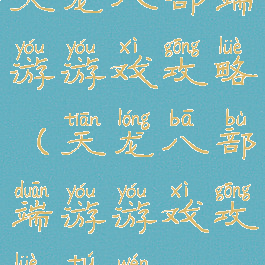 天龙八部端
yóu yóu xì gōng lüè
游游戏攻略
tiān lóng bā bù
(天龙八部
duān yóu yóu xì gōng
端游游戏攻
lüè